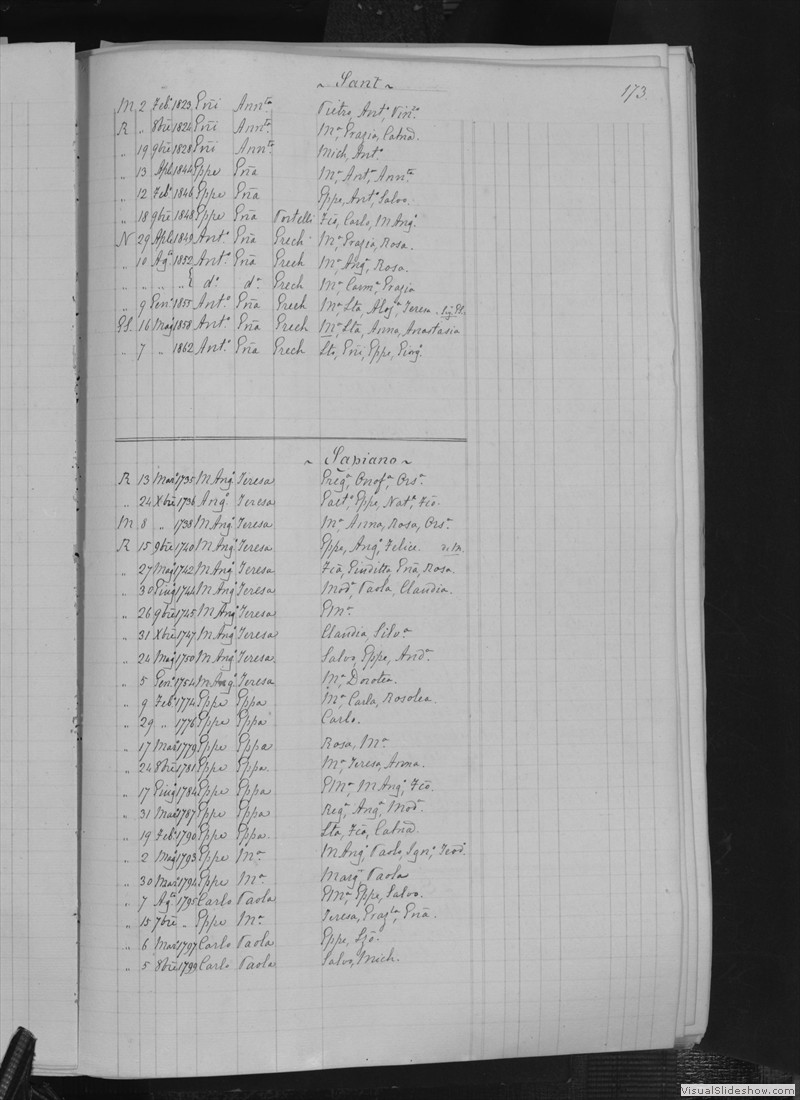 ~ Sant ~
173.
M 2 Feb.º 1823 Gñi Ann.ta Pietro, Ant.º, Vin.zo
R " 8bre 1824 Gñi Ann.ta M.a, Grazia, Catnã.
" 19 9bre 1828 Gñi Ann.ta Mich, Ant.º
" 13 Aple 1844 Gppe Gña M.a, Ant.a, Ann.ta
" 12 Feb.º 1846 Gppe Gña Gppe, Ant.º, Salvo.
" 18 9bre 1848 Gppe Gña Portelli Fcõ, Carlo, M Ang.º
N 29 Aple 1849 Ant.º Gña Grech M.a, Grazia, Rosa.
" 10 Ag.to 1852 Ant.º Gña Grech M.a, Ang.a, Rosa.
" " " " E d.º d.a Grech M.a, Carm.a, Grazia
" 9 Gen.º 1855 Ant.º Gña Grech M.a Sta, Aloj.a, Teresa.
GS. 16 Mag.º 1858 Ant.º Gña Grech M.a Sta, Anna, Anastasia
" 7 " 1862 Ant.º Gña Grech Sto, Gñi, Gppe, Giorg.º
~ Sapiano ~
R 13 Mar.º 1735 M Ang.º Teresa Greg.a, Onof.a, Ors.a
" 24 Xbre 1736 Ang.º Teresa Gaet.º, Gppe, Nat.e, Fcõ.
M 8 " 1738 M Ang.º Teresa M.a Anna, Rosa, Ors.a
R 15 9bre 1740 M Ang.º Teresa Gppe, Ang.º, Felice.
" 27 Mag.º 1742 M Ang.º Teresa Fcã, Giuditta, Gñã, Rosa.
" 30 Giug.º 1744 M Ang.º Teresa Mod.a, Paola, Claudia.
" 26 9bre 1745 M Ang.º Teresa GM.a
" 31 Xbre 1747 M Ang.º Teresa Claudia, Silv.a
" 24 Mag.º 1750 M Ang.º Teresa Salvo, Gppe, And.a
" 5 Gen.º 1754 M Ang.º Teresa M.a, Dorotea.
" 9 Feb.º 1774 Gppe Gppa M.a, Carla, Rosolea.
" 29 " 1776 Gppe Gppa Carlo.
" 17 Mar.º 1779 Gppe Gppa Rosa, M.a
" 24 8bre 1781 Gppe Gppa. M.a, Teresa, Anna.
" 17 Giug.º 1784 Gppe Gppa GM.a, M Ang.º, Fcõ.
" 31 Mar.º 1787 Gppe Gppa Reg.a, Ang.a, Mod.a
" 19 Feb.º 1790 Gppe Gppa. Sta, Fcã, Catnã.
" 2 Mag.º 1793 Gppe M.a M Ang.º, Paolo, Ign.º, Teod.º
" 30 Mar.º 1794 Gppe M.a Marg.a Paola
" 7 Ag.to 1795 Carlo Paola GM.a, Gppe, Salvo.
" 15 7bre " Gppe M.a Teresa, Graz.la, Gñã.
" 6 Mar.º 1797 Carlo Paola Gppe,
" 5 8bre 1799 Carlo Paola Salvo, Mich.
VisualSlideshow.com